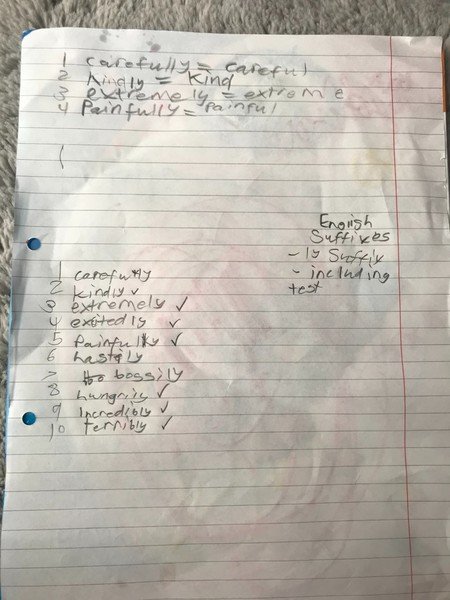 1 carefully = careful
2 kindly = kind
3 extremely = extreme
4 Painfully = Painful
(
English
Suffixes
- ly Suffix
- including
test
1 carefully
2 kindly ✓
3 extremely ✓
4 exotedly ✓
5 Painfully ✓
6 hastily
7 bossily
8 hungrily ✓
9 Incredibly ✓
10 terribly ✓